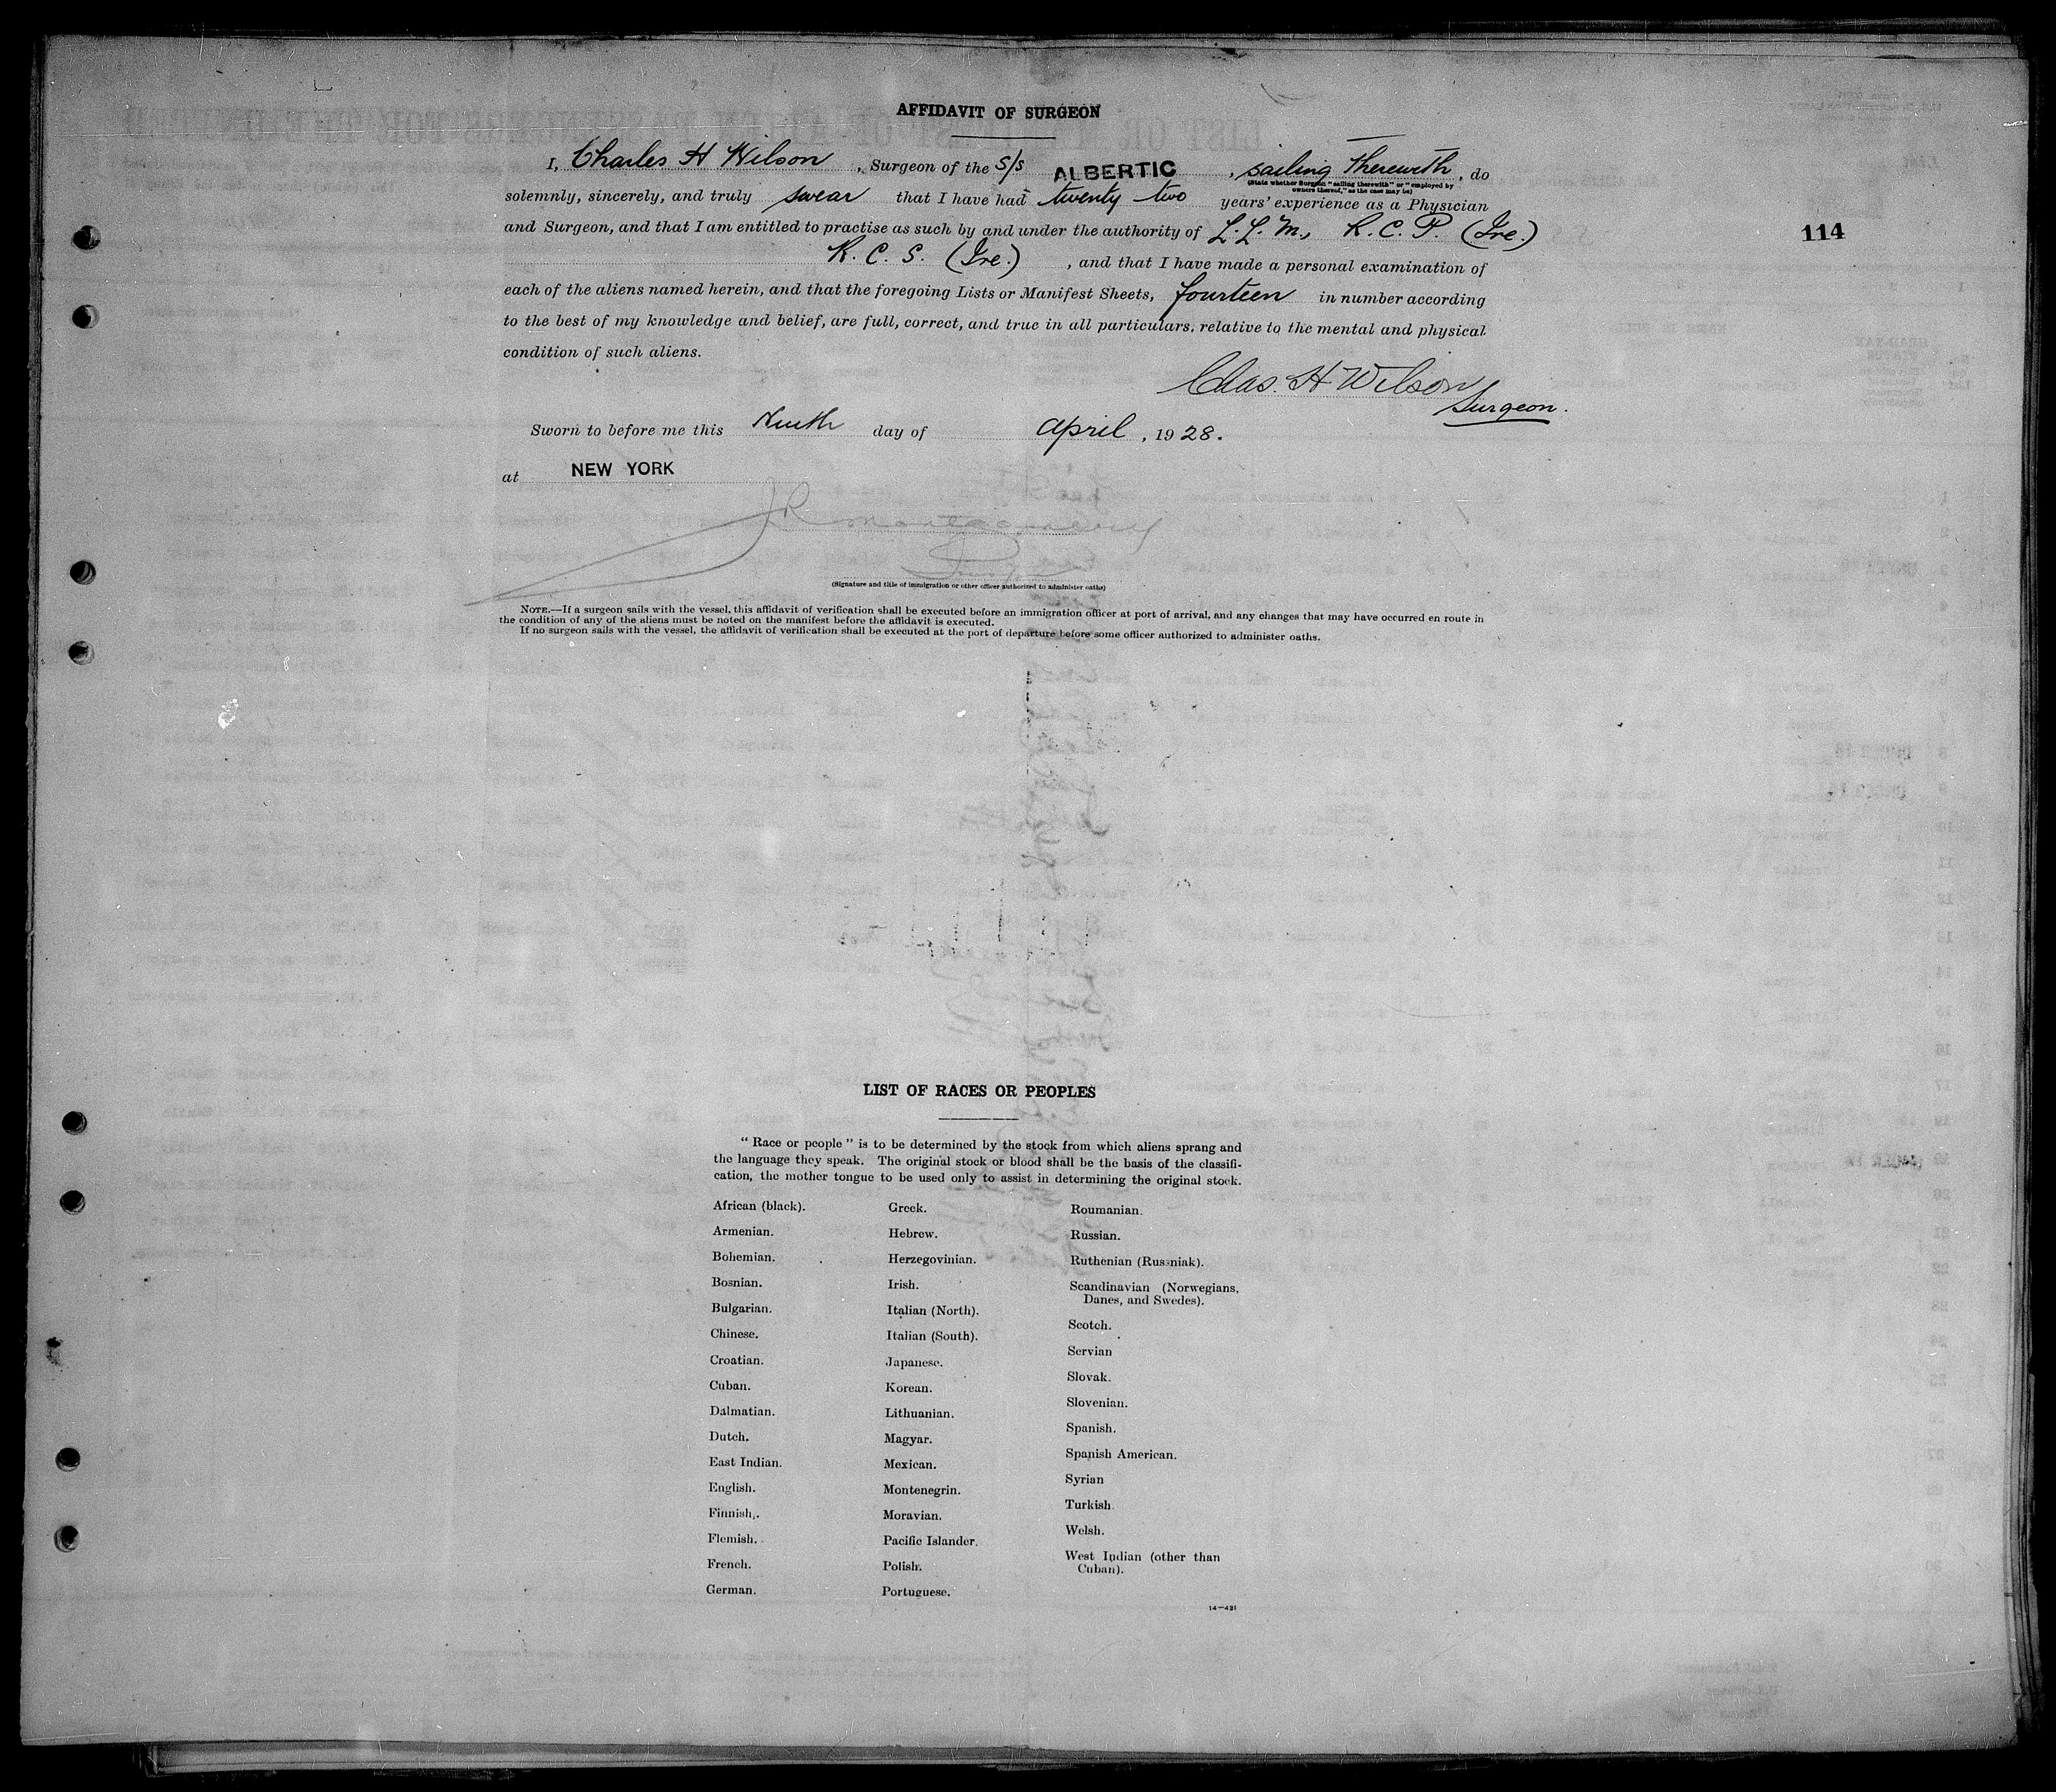 AFFIDAVIT OF SURGEON
I, Charles H Wilson, Surgeon of the S/S ALBERTIC, sailing therewith, do
(State whether Surgeon "sailing therewith" or "employed by
owners thereof," as the case may be)
solemnly, sincerely, and truly swear that I have had twenty two years' experience as a Physician
and Surgeon, and that I am entitled to practise as such by and under the authority of L.L.M., R.C.P. (Ire.)
R.C.S. (Ire.), and that I have made a personal examination of
each of the aliens named herein, and that the foregoing Lists or Manifest Sheets, fourteen in number according
to the best of my knowledge and belief, are full, correct, and true in all particulars, relative to the mental and physical
condition of such aliens.
Chas. H Wilson
Surgeon.
Sworn to before me this Ninth day of April, 1928.
at NEW YORK
JR Montgomery
Insp
(Signature and title of immigration or other officer authorized to administer oaths)
NOTE.—If a surgeon sails with the vessel, this affidavit of verification shall be executed before an immigration officer at port of arrival, and any changes that may have occurred en route in
the condition of any of the aliens must be noted on the manifest before the affidavit is executed.
If no surgeon sails with the vessel, the affidavit of verification shall be executed at the port of departure before some officer authorized to administer oaths.
114
LIST OF RACES OR PEOPLES
"Race or people" is to be determined by the stock from which aliens sprang and
the language they speak. The original stock or blood shall be the basis of the classifi-
cation, the mother tongue to be used only to assist in determining the original stock.
African (black).
Armenian.
Bohemian.
Bosnian.
Bulgarian.
Chinese.
Croatian.
Cuban.
Dalmatian.
Dutch.
East Indian.
English.
Finnish.
Flemish.
French.
German.
Greek.
Hebrew.
Herzegovinian.
Irish.
Italian (North).
Italian (South).
Japanese.
Korean.
Lithuanian.
Magyar.
Mexican.
Montenegrin.
Moravian.
Pacific Islander.
Polish.
Portuguese.
Roumanian.
Russian.
Ruthenian (Russniak).
Scandinavian (Norwegians,
Danes, and Swedes).
Scotch.
Servian
Slovak.
Slovenian.
Spanish.
Spanish American.
Syrian
Turkish
Welsh.
West Indian (other than
Cuban).
14—431